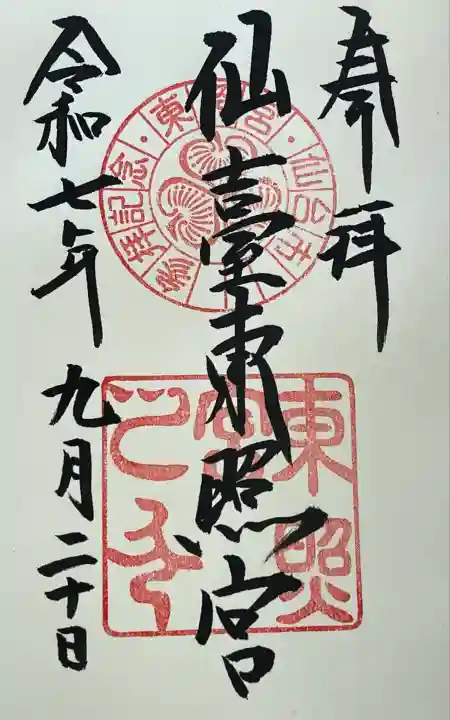 奉拝
仙臺東照宮
令和七年九月二十日
東照宮・仙台市・参拝記念・
東照宮